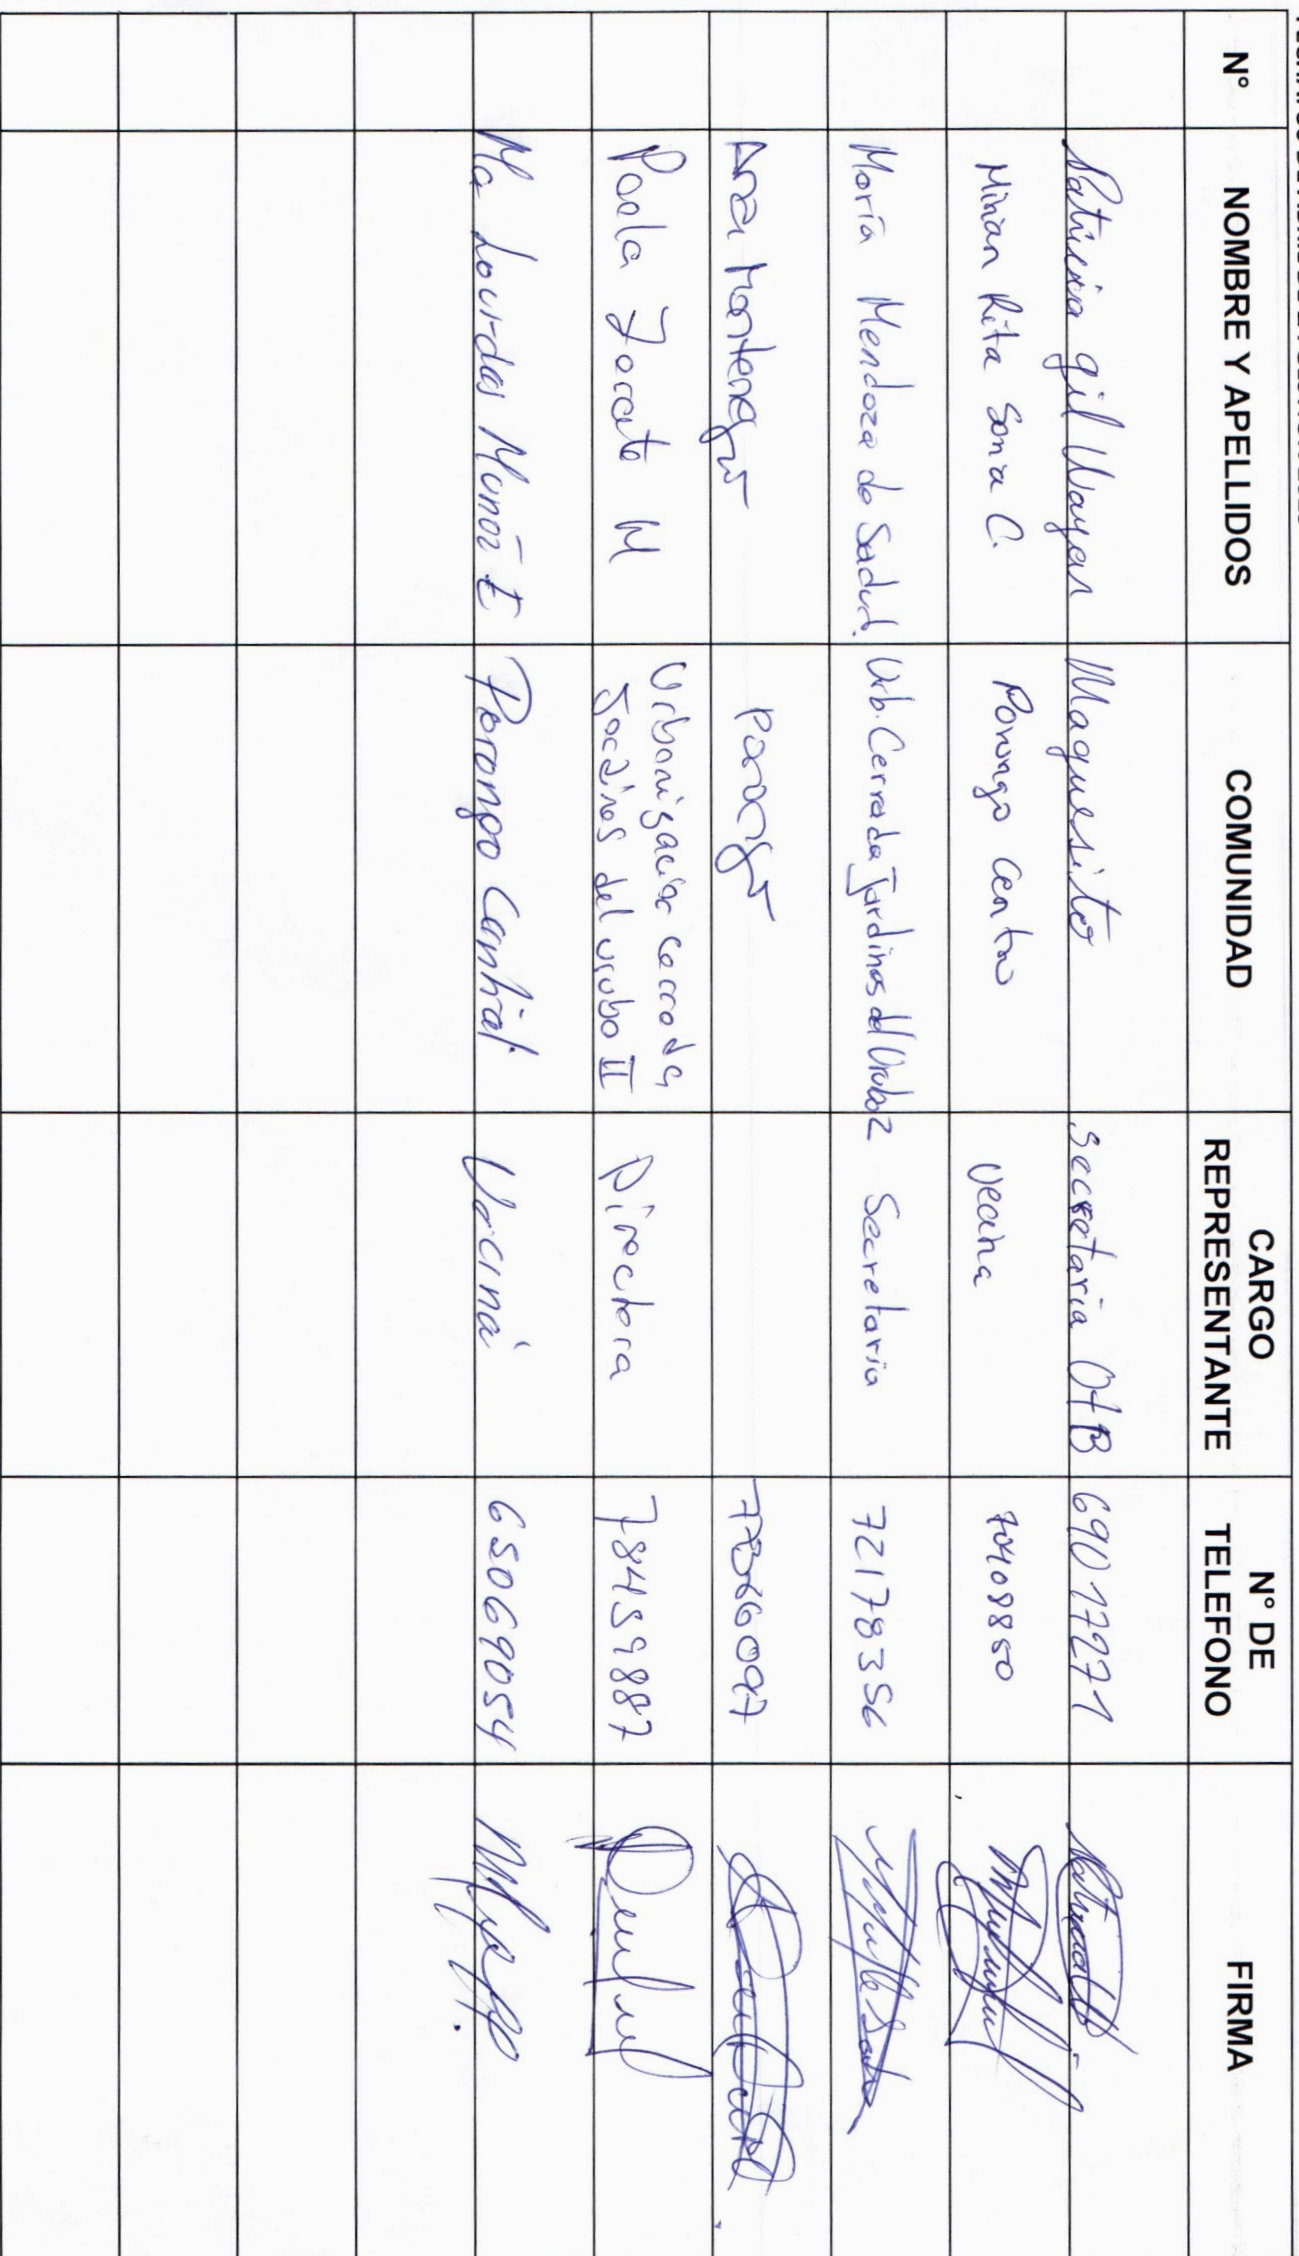 N° NOMBRE Y APELLIDOS COMUNIDAD CARGO REPRESENTANTE N° DE TELEFONO FIRMA
Patricia gil Vayar Maquesito Secretaria OTB 69017271
Mirian Rita Soria C. Porongo Centro Vecina
María Mendoza de Urb. Cerrada Jardines del Urubo 2 Secretaria 72178356
Ana Montenegro Porongo
Paola Zarate M Urbanización cerrada Jardines del urubo II Directora 78459887
Ma Lourdes Munóz E Porongo Vecina 65069054